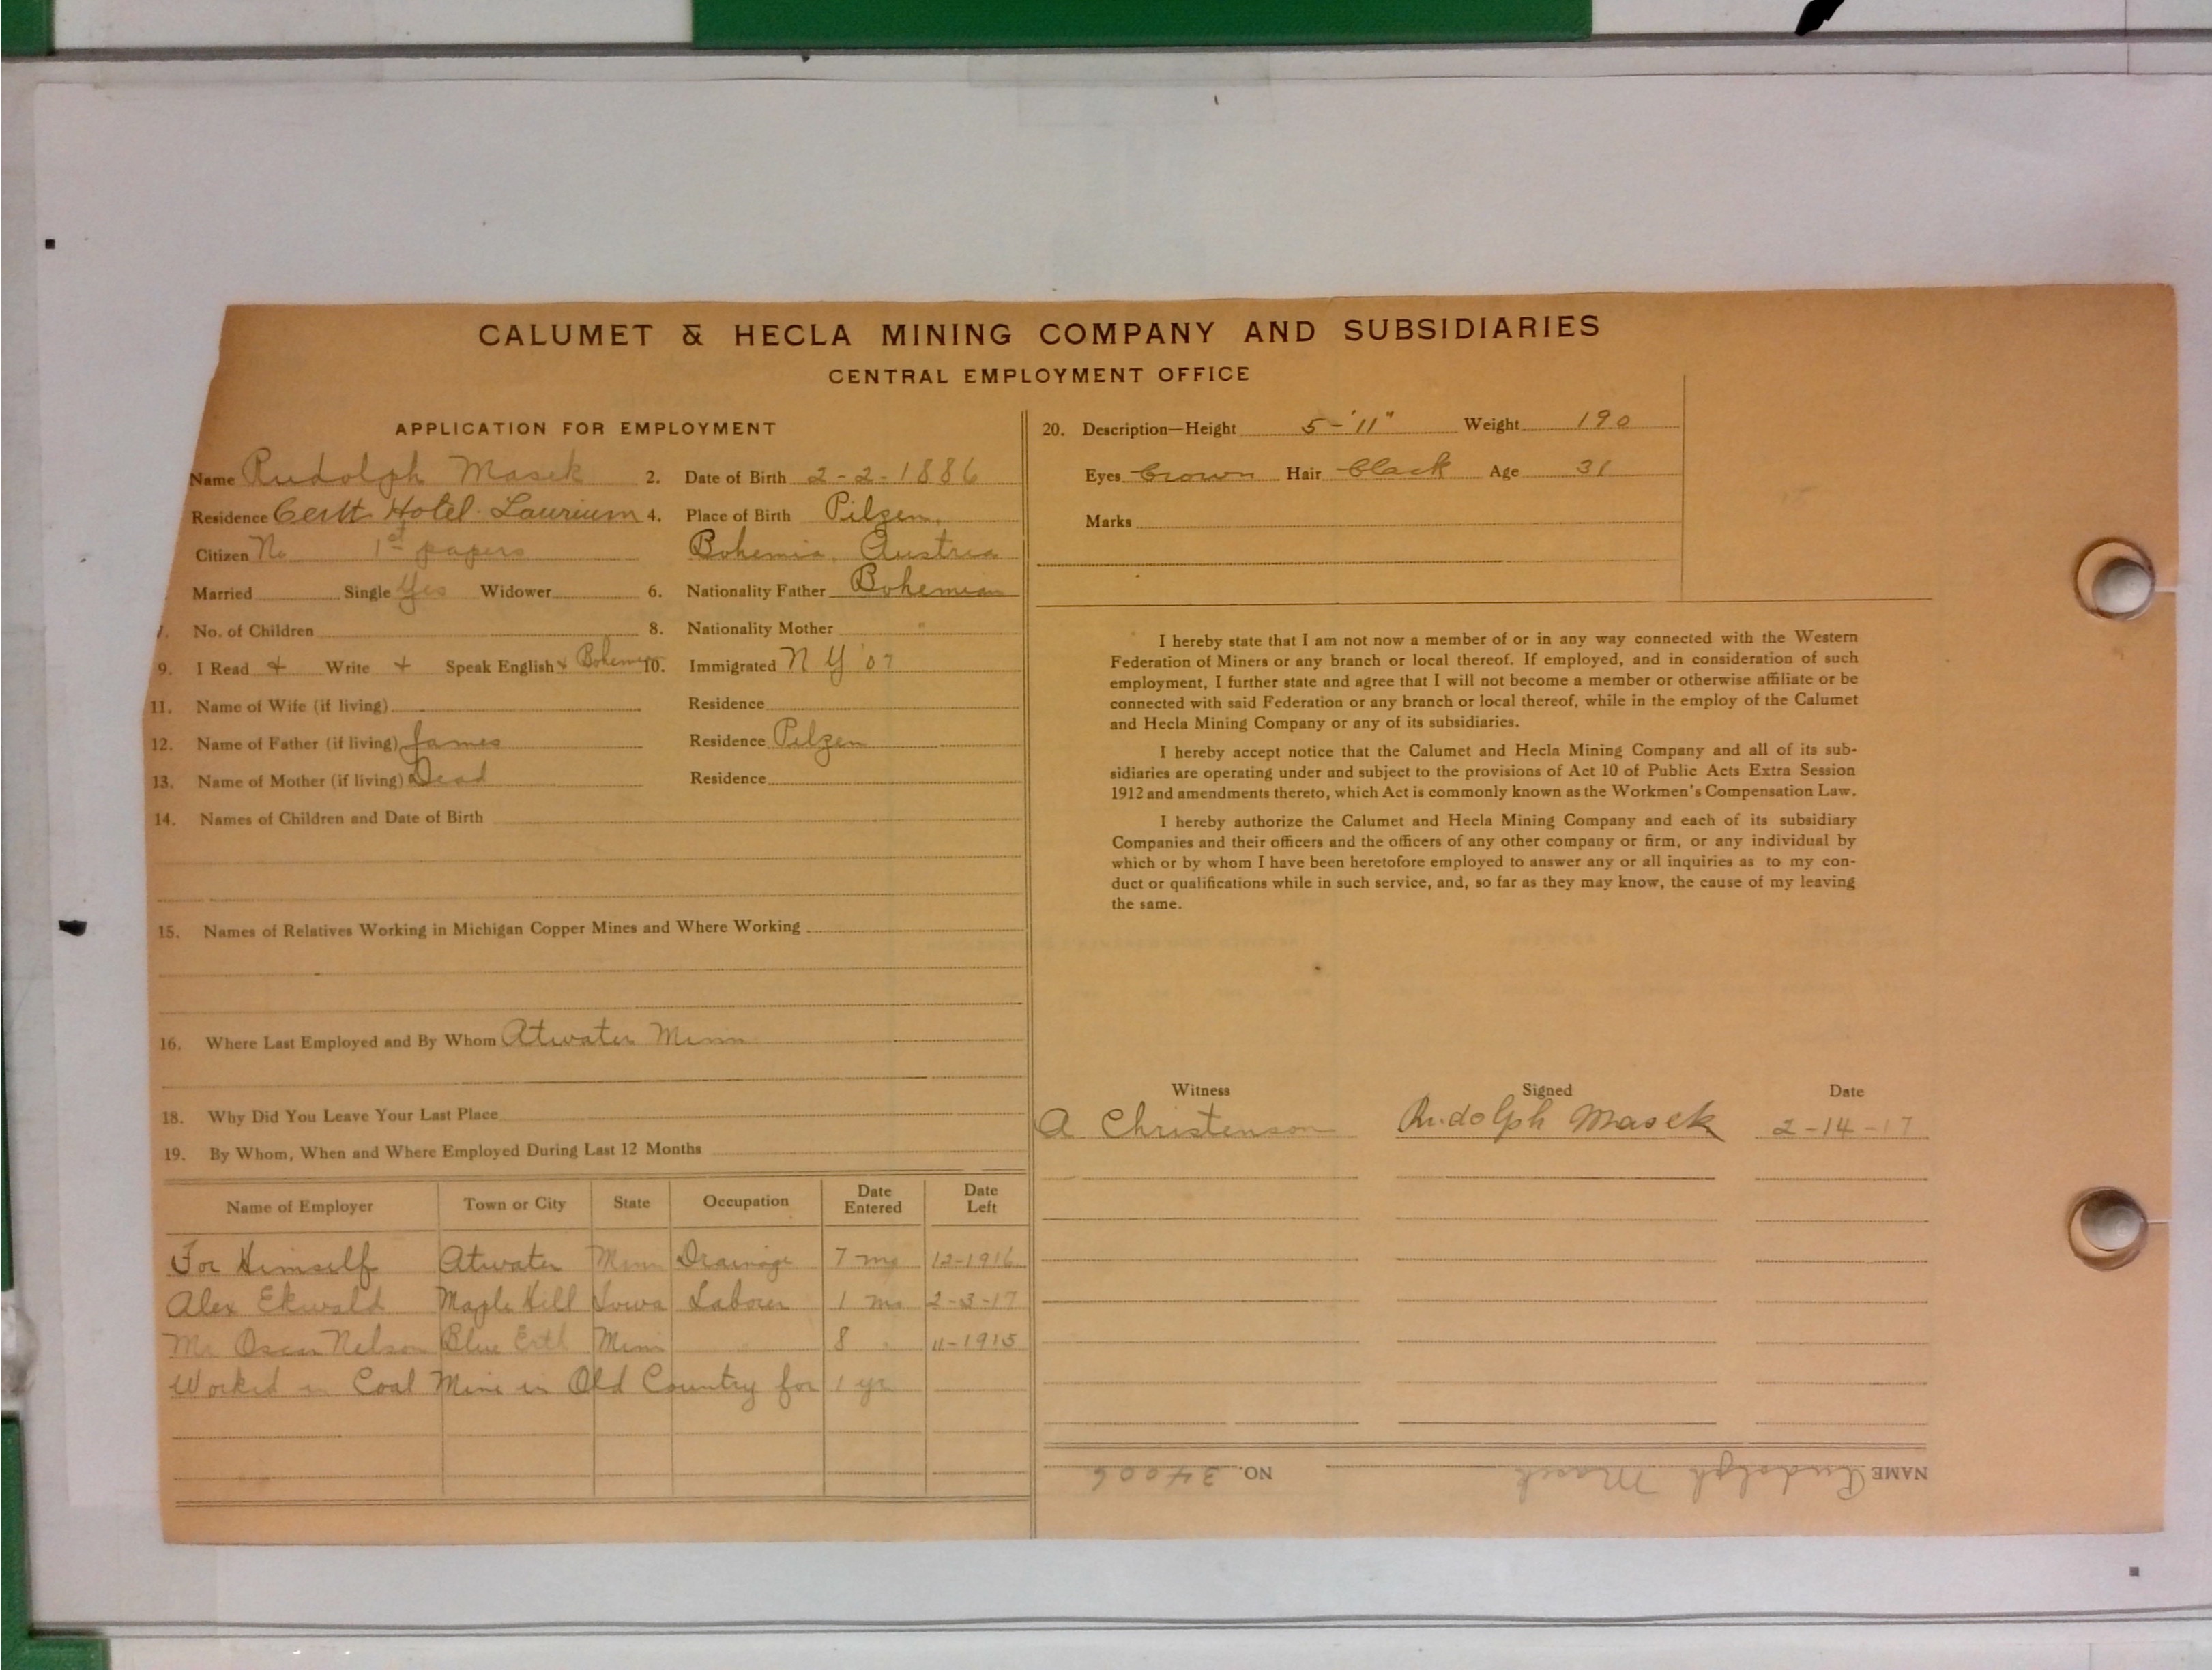 CALUMET & HECLA MINING COMPANY AND SUBSIDIARIES
CENTRAL EMPLOYMENT OFFICE
APPLICATION FOR EMPLOYMENT
Name Rudolph Masek 2. Date of Birth 2-2-1886
Residence Hotel Laurium 4. Place of Birth Pilzen,
Citizen No 1st papers Bohemia, Austria
Married Single Yes Widower 6. Nationality Father Bohemian
7. No. of Children 8. Nationality Mother "
9. I Read + Write + Speak English + Bohemian 10. Immigrated N Y '07
11. Name of Wife (if living) Residence
12. Name of Father (if living) James Residence Pilzen
13. Name of Mother (if living) Dead Residence
14. Names of Children and Date of Birth
15. Names of Relatives Working in Michigan Copper Mines and Where Working
16. Where Last Employed and By Whom Atwater Minn
18. Why Did You Leave Your Last Place
19. By Whom, When and Where Employed During Last 12 Months
Name of Employer Town or City State Occupation Date Entered Date Left
For Himself Atwater Minn Drainage 7 mo 12-1916
Alex Ekwald Maple Hill Iowa Laborer 1 mo 2-3-17
Mr Oscar Nelson Blue Erth Minn " 8 " 11-1915
Worked in Coal Mine in Old Country for 1 yr
20. Description—Height 5-'11" Weight 190
Eyes brown Hair black Age 31
Marks
I hereby state that I am not now a member of or in any way connected with the Western
Federation of Miners or any branch or local thereof. If employed, and in consideration of such
employment, I further state and agree that I will not become a member or otherwise affiliate or be
connected with said Federation or any branch or local thereof, while in the employ of the Calumet
and Hecla Mining Company or any of its subsidiaries.
I hereby accept notice that the Calumet and Hecla Mining Company and all of its sub-
sidiaries are operating under and subject to the provisions of Act 10 of Public Acts Extra Session
1912 and amendments thereto, which Act is commonly known as the Workmen's Compensation Law.
I hereby authorize the Calumet and Hecla Mining Company and each of its subsidiary
Companies and their officers and the officers of any other company or firm, or any individual by
which or by whom I have been heretofore employed to answer any or all inquiries as to my con-
duct or qualifications while in such service, and, so far as they may know, the cause of my leaving
the same.
Witness Signed Date
A Christenson Rudolph Masek 2-14-17
NAME Rudolph Masek NO. 34006